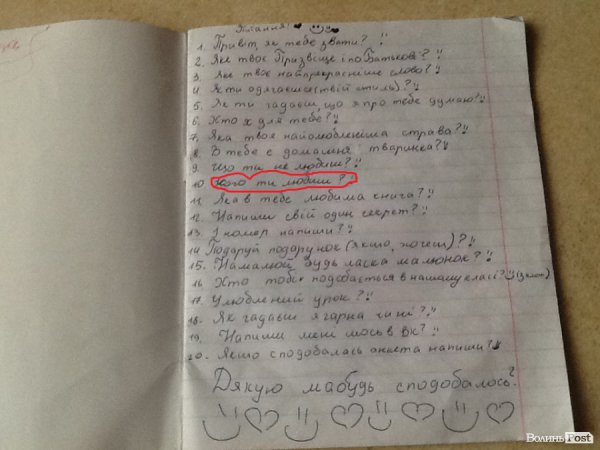 Питання!
1. Привіт, як тебе звати?
2. Яке твоє Прізвище і по Батькові?
3. Яке твоє найпрекрасніше слово?
4. Як ти одягаєшся (твій стиль)?
5. Як ти гадаєш, що я про тебе думаю?
6. Хто я для тебе?
7. Яка твоя найомлюбленіша страва?
8. В тебе є домашня тваринка?
9. Що ти не любиш?
10. Кого ти любиш?
11. Яка в тебе любима книга?
12. Напиши свій один секрет?
13. І номер напиши?
14. Подаруй подарунок (якшо, хочеш)?
15. Намалюй будь ласка малюнок?
16. Хто тобі подобається в нашому класі?
17. Улюблений урок?
18. Як гадаєш я гарна чи ні?
19. Напиши мені шось в Вк?
20. Якшо сподобалась анкета напиши?
Дякую мабудь сподобалось?
ВолиньPost